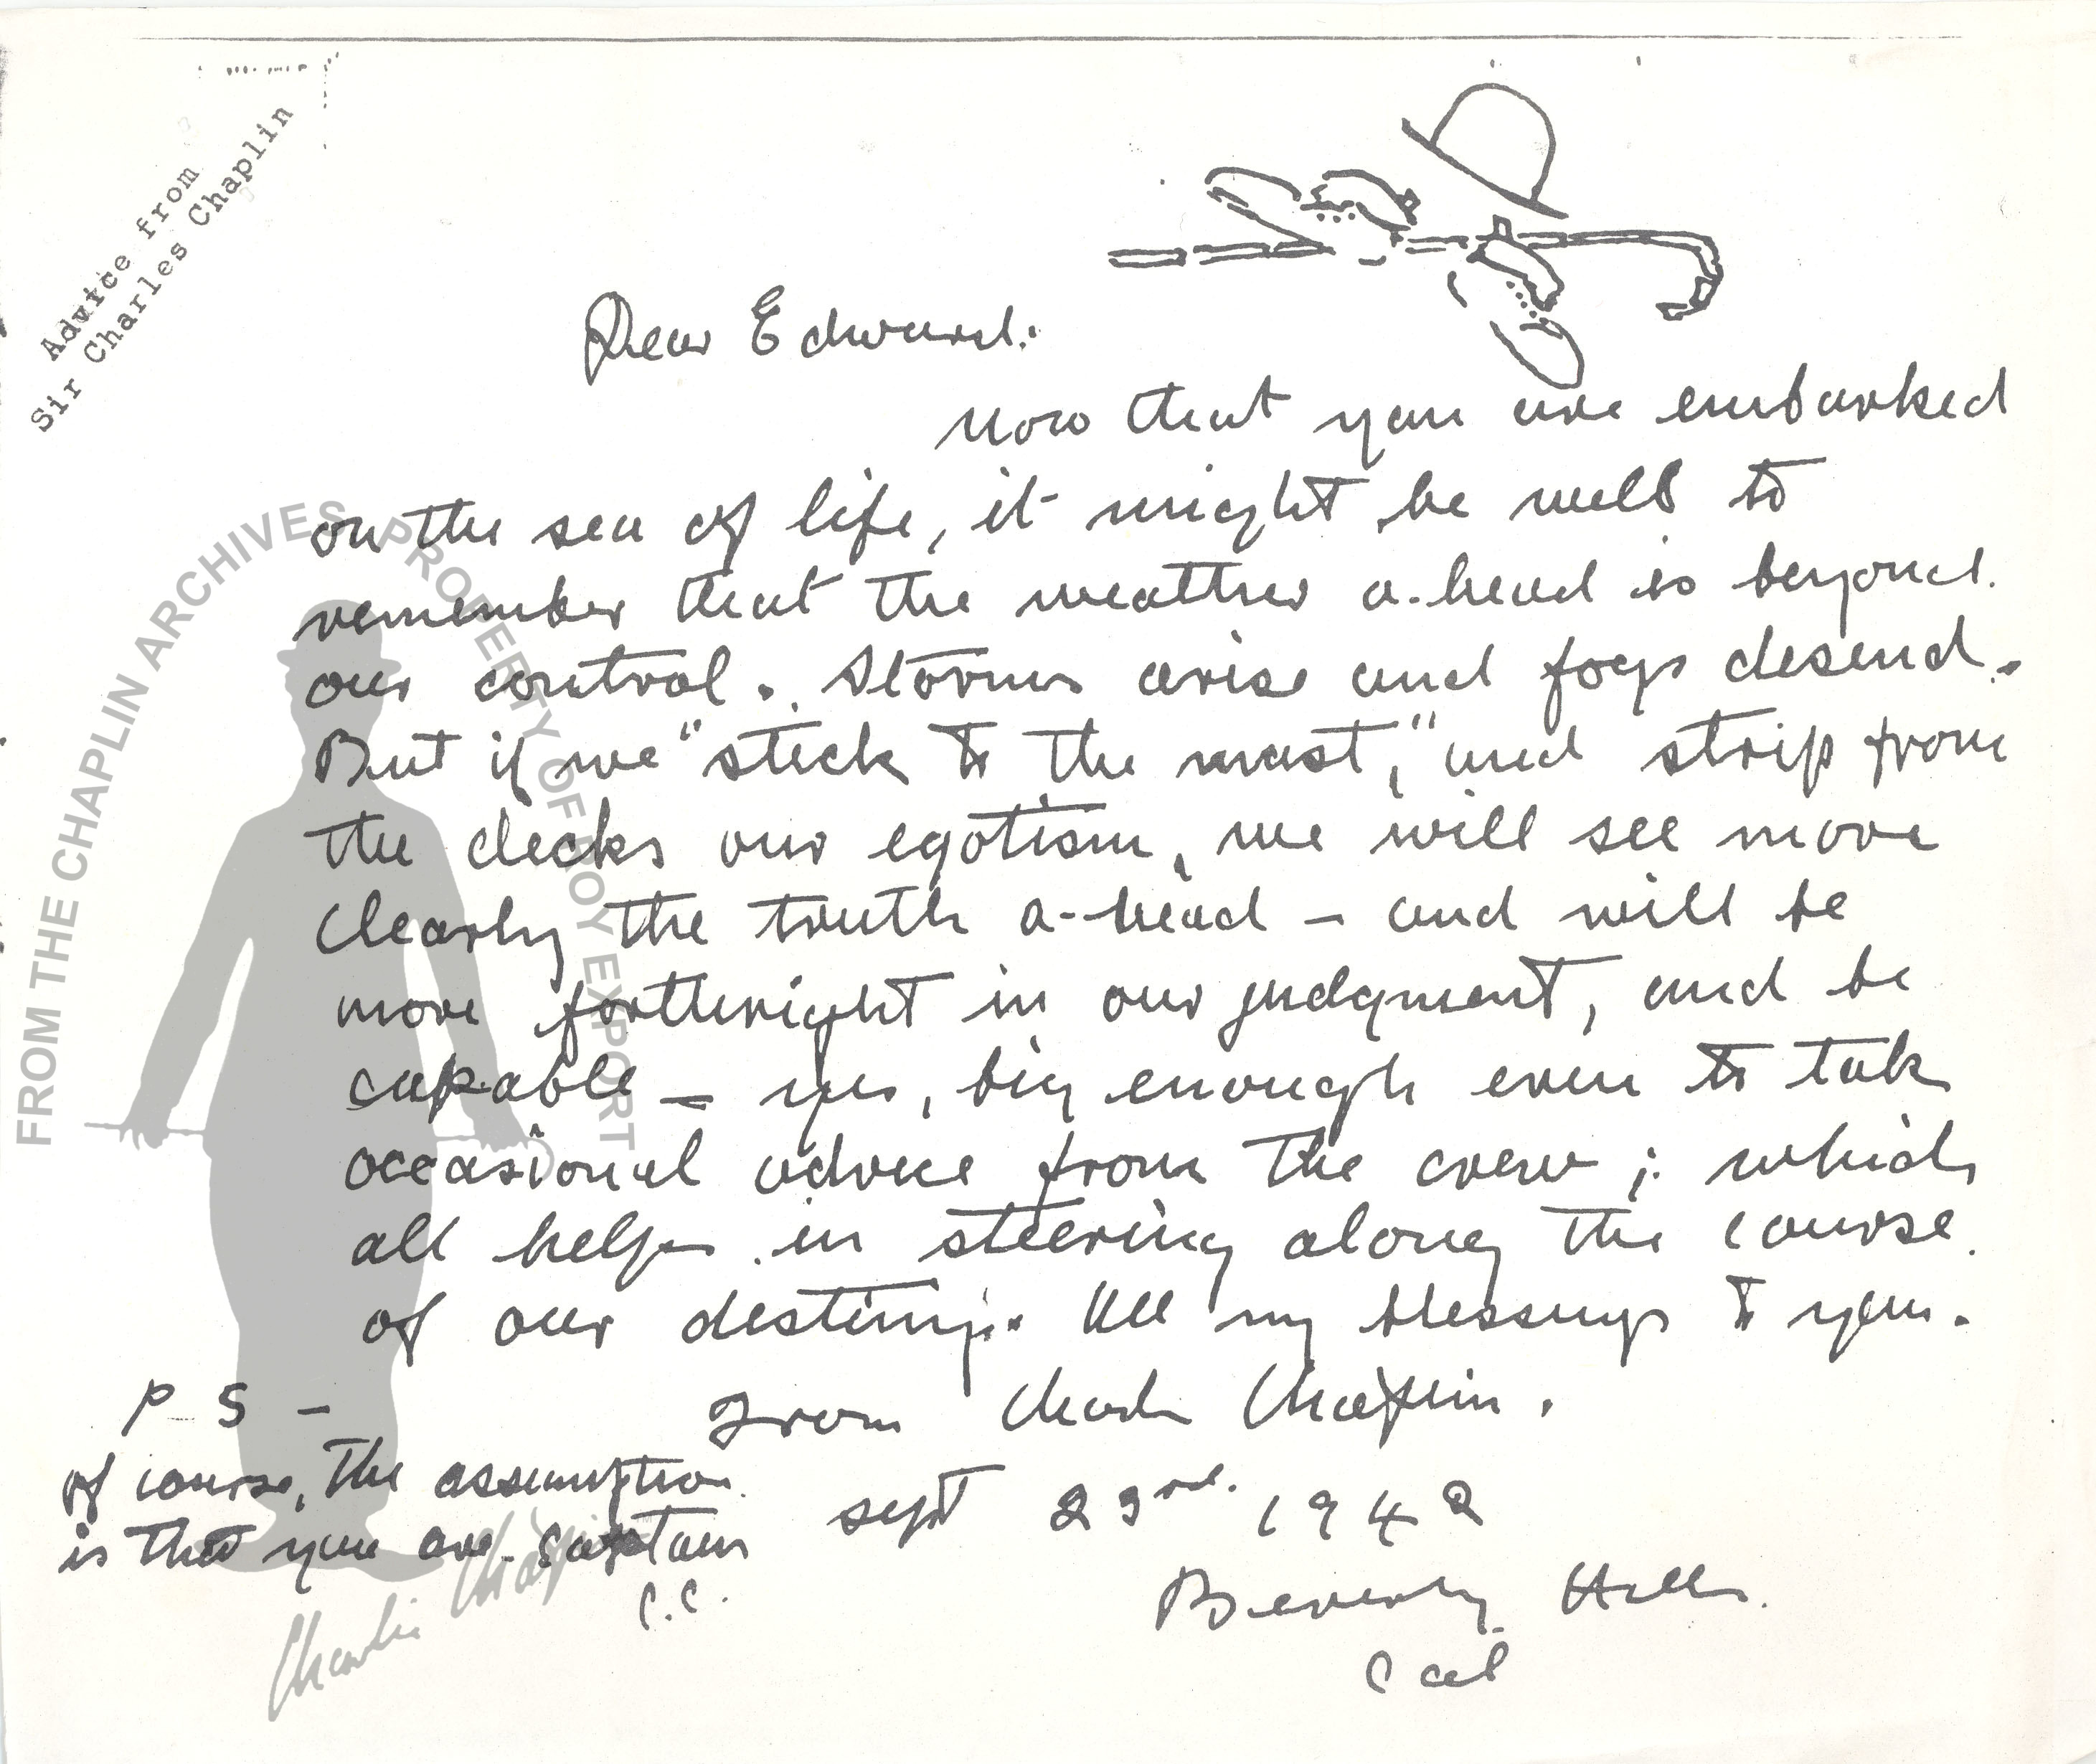 Advice from
Sir Charles Chaplin
Dear Edward:
Now that you are embarked
on the sea of life, it might be well to
remember that the weather a-head is beyond
our control. Storms arise and fogs desend.
But if we "stick to the mast," and strip from
the decks our egotism, we will see more
clearly the truth a-head – and will be
more forthright in our judgment, and be
capable – yes, big enough even to take
occasional advice from the crew; which
all helps in steering along the course
of our destiny. All my blessings to you.
From Charlie Chaplin.
Sept 23rd. 1942
Beverly Hills.
Cal
P S –
of course, the assumption
is that you are Captain
C.C.
FROM THE CHAPLIN ARCHIVES PROPERTY OF ROY EXPORT
Charlie Chaplin